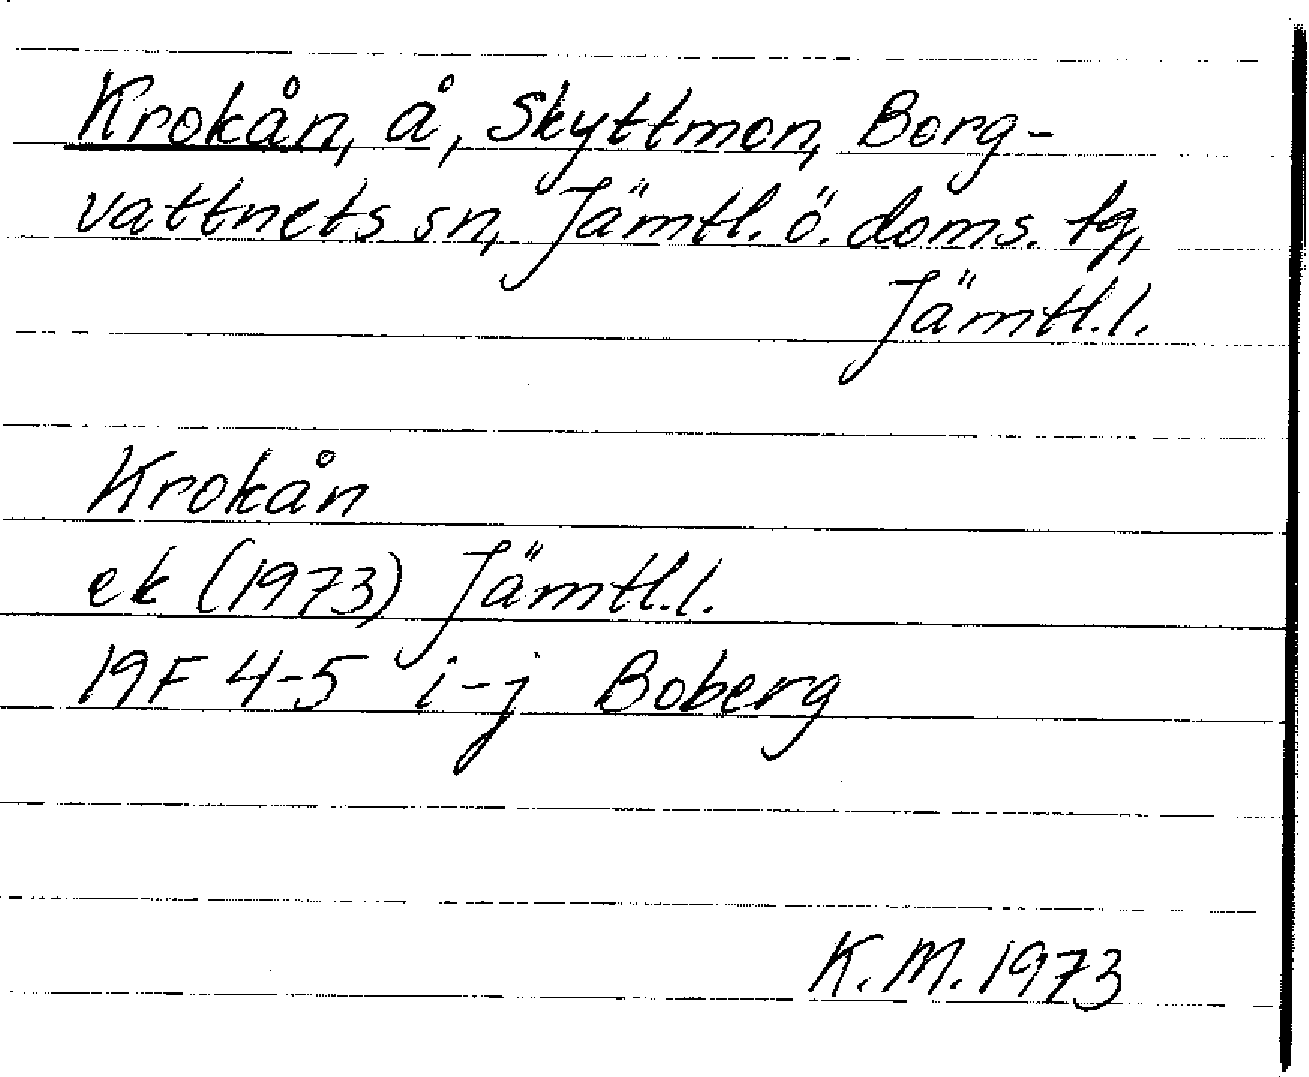 Krokån, å, Skyttmon, Borg-
vattnets sn, Jämtl. ö. doms. tg,
Jämtl. l.
Krokån
ek (1973) Jämtl. l.
19F 4-5 i-j Boberg
K. M. 1973